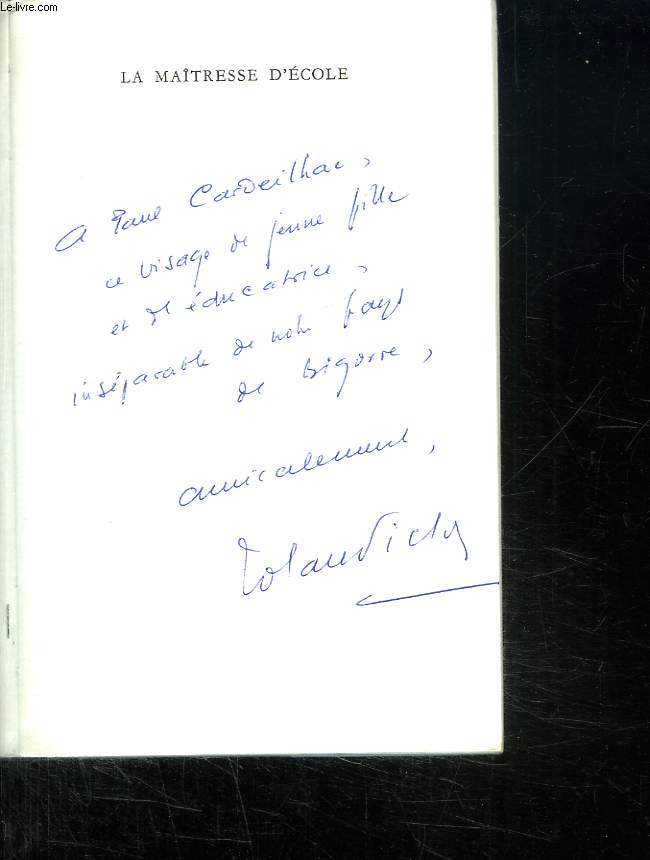 Le-livre.com
LA MAÎTRESSE D'ÉCOLE
A Paul Cardeilhac,
ce visage de jeune fille
et d'éducatrice,
inséparable de notre pays
de Bigorre,
amicalement,